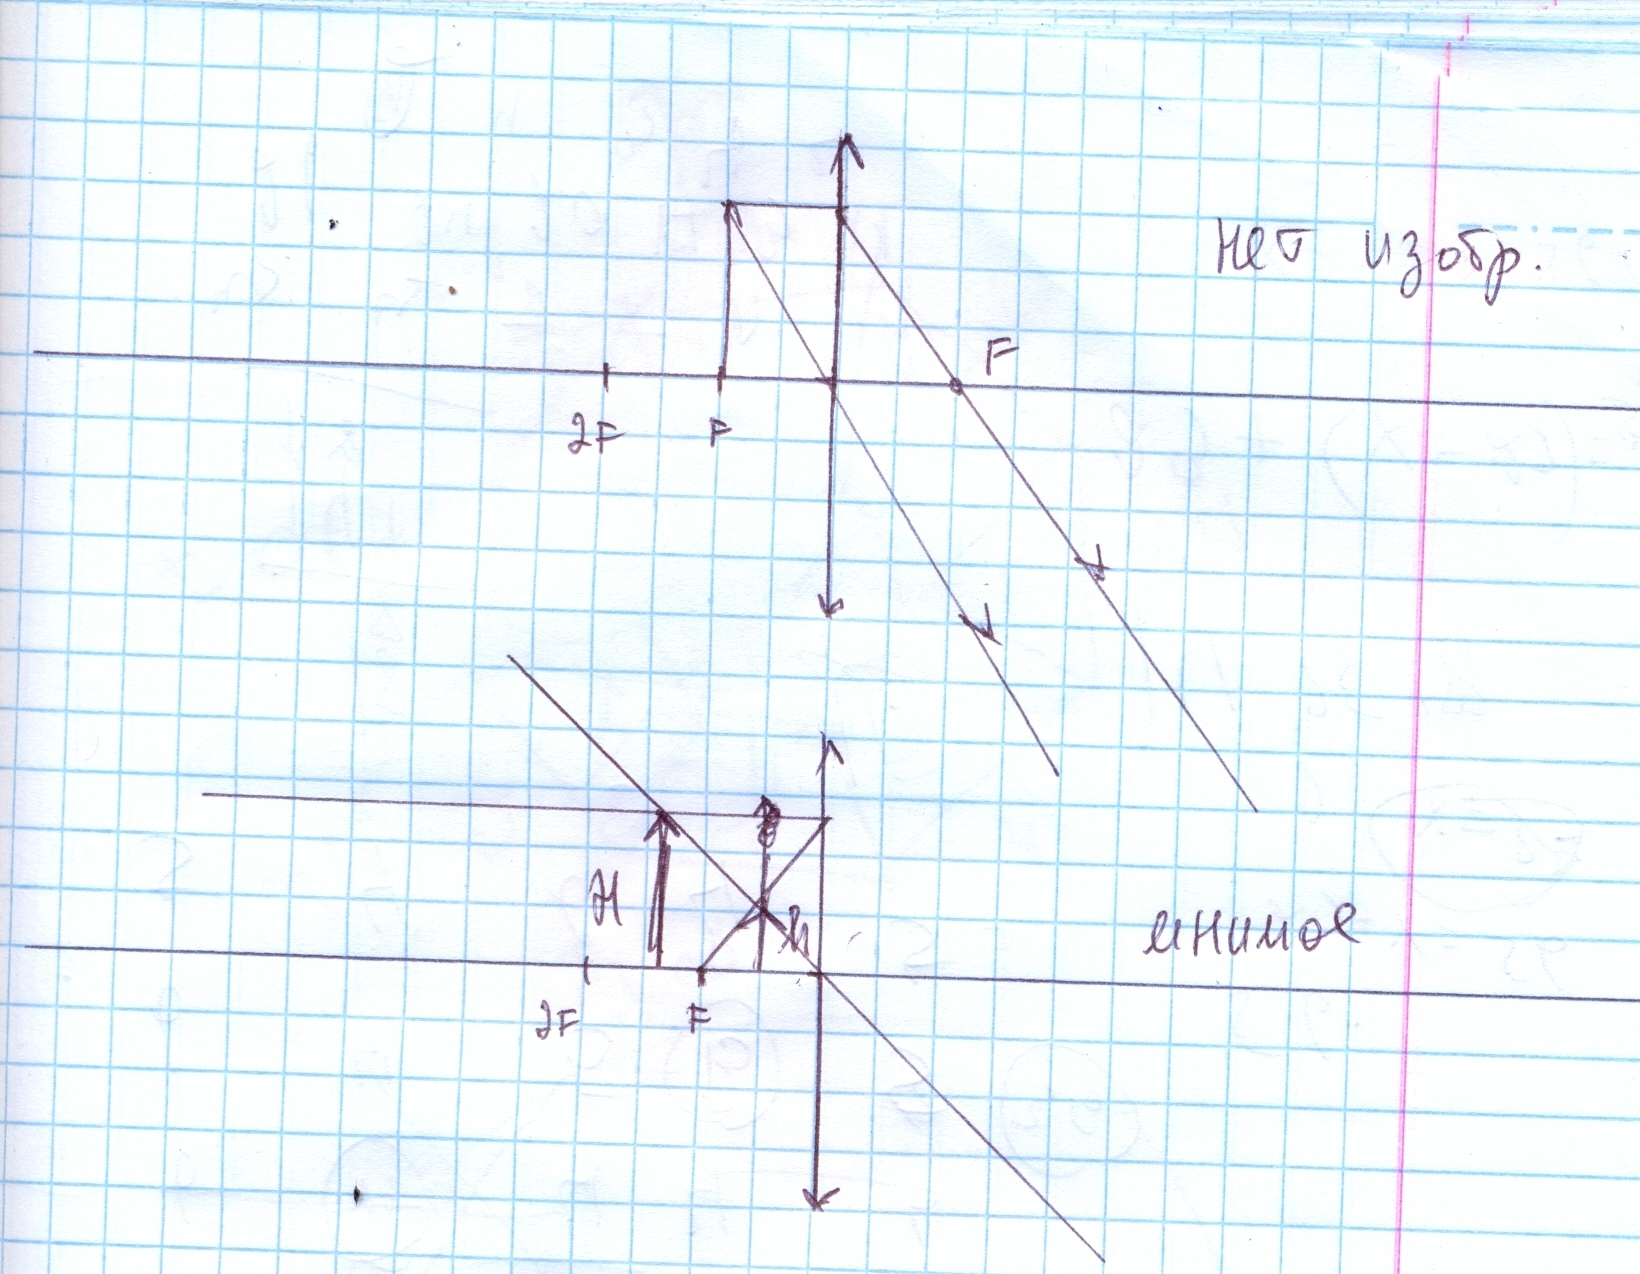 Нет изобр.
F
2F F
H h
мнимое
2F F